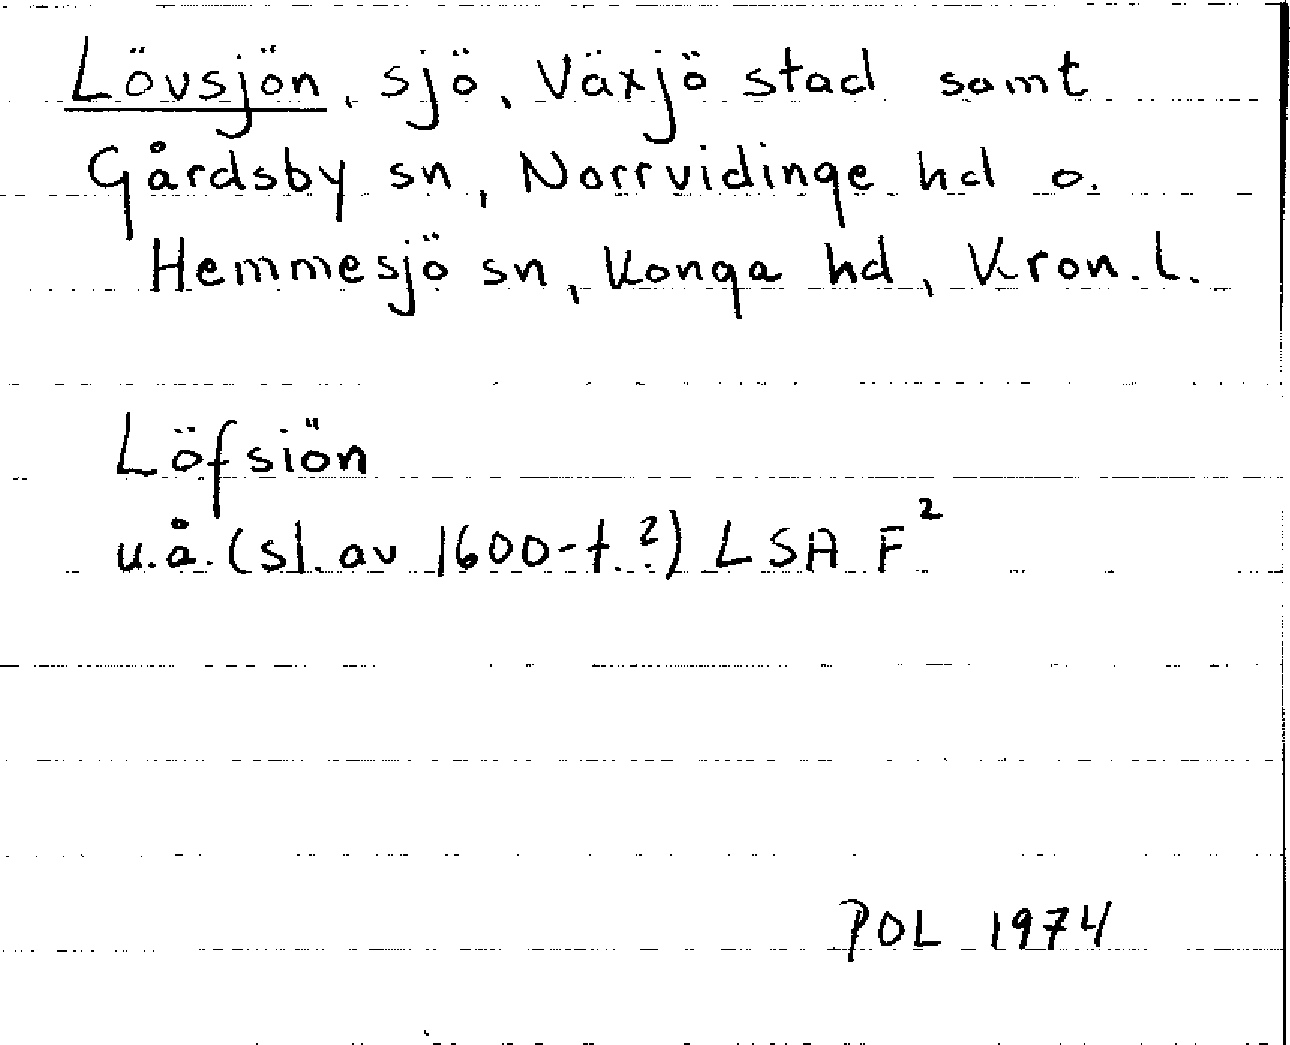 Lövsjön, sjö, Växjö stad samt
Gårdsby sn, Norrvidinge hd o.
Hemmesjö sn, Konga hd, Kron. l.
Löfsiön
u.å. (sl. av 1600-t.?) LSA F²
POL 1974